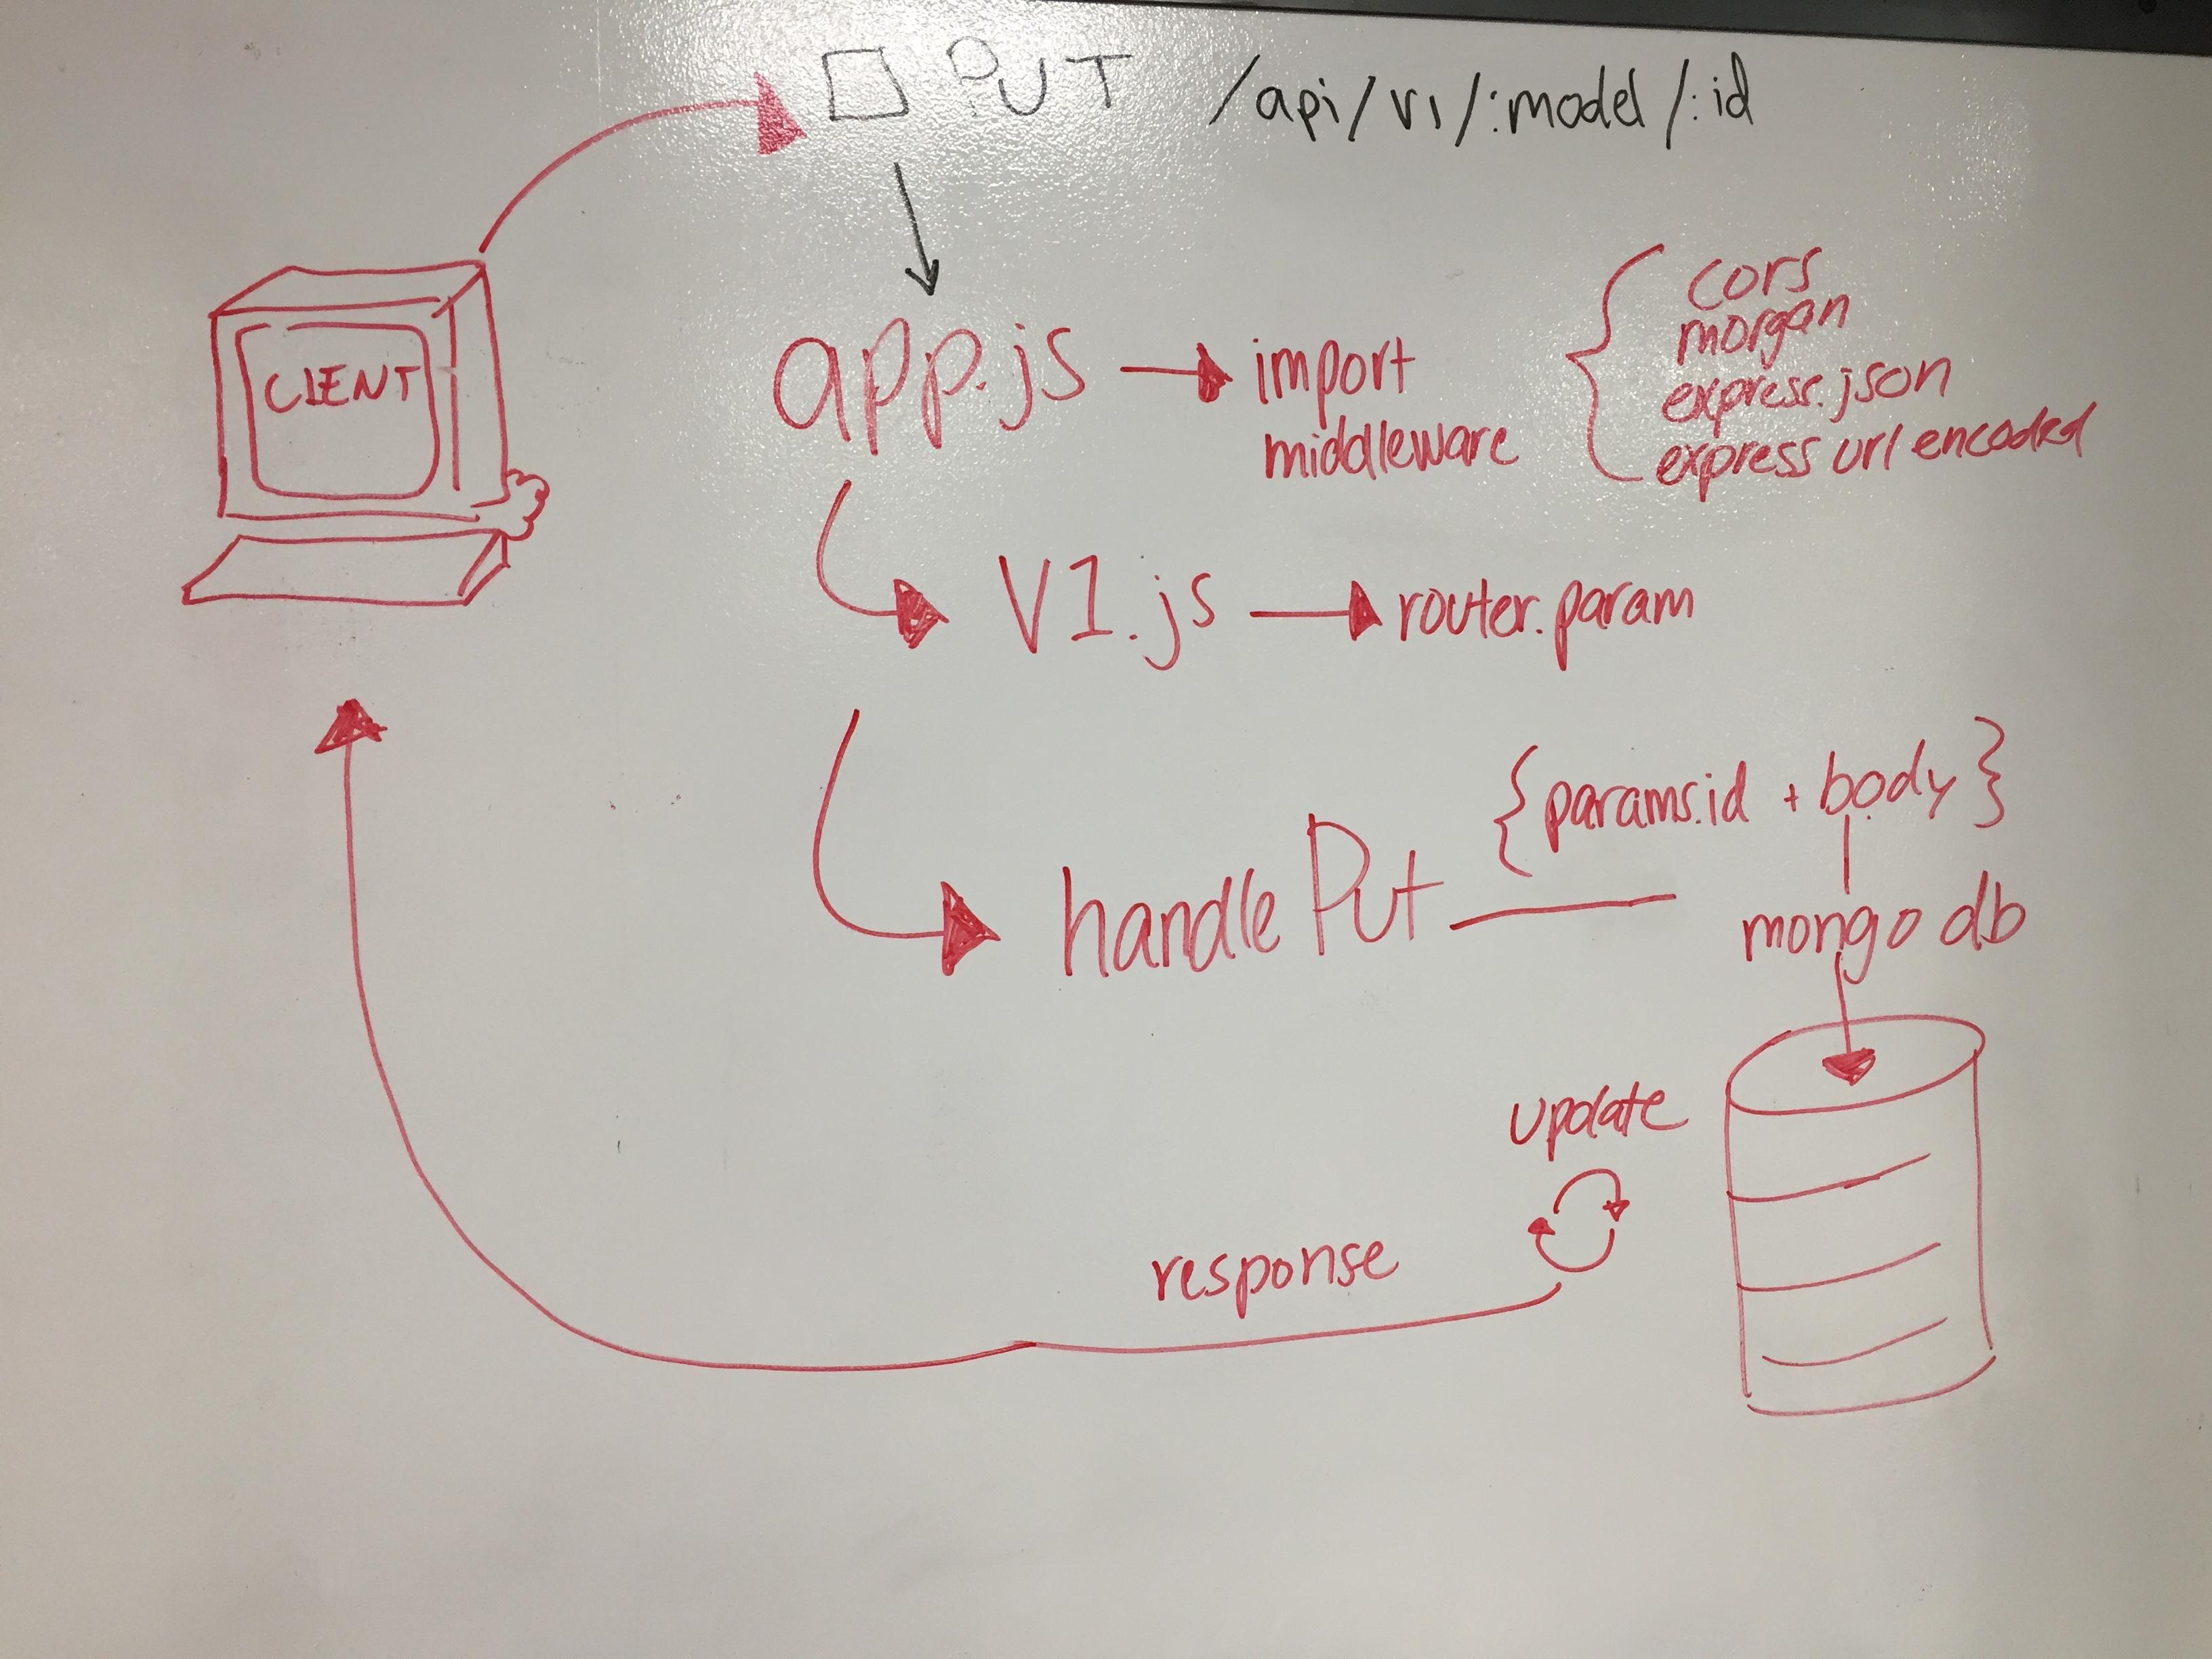 PUT /api/v1/:model/:id
CLIENT
app.js
import
middleware
cors
morgan
express.json
express urlencoded
V1.js
router.param
{params.id + body}
handle Put
mongo db
update
response